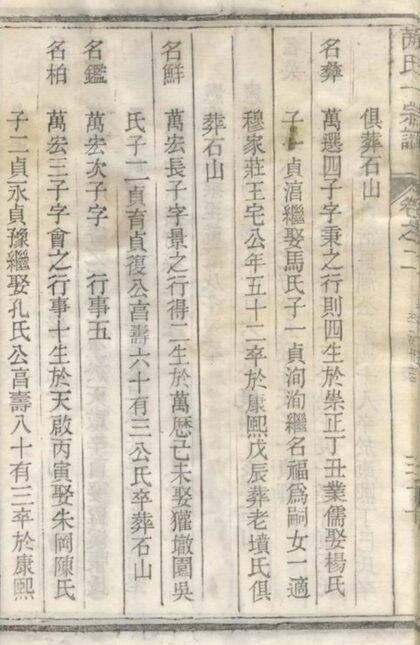 氏宗譜 卷之二
俱葬石山
名彝 萬選四子字秉之行則四生於崇正丁丑業儒娶楊氏
子一貞湻繼娶馬氏子一貞洵洵繼名福爲嗣女一適
穆家莊王宅公年五十二卒於康熙戊辰葬老墳氏俱
葬石山
名鮮 萬宏長子字景之行得二生於萬歷己未娶獾墩園吳
氏子二貞育貞復公高壽六十有三公氏卒葬石山
名鑑 萬宏次子字 行事五
名柏 萬宏三子字會之行事十生於天啟丙寅娶朱岡陳氏
子二貞永貞豫繼娶孔氏公高壽八十有三卒於康熙